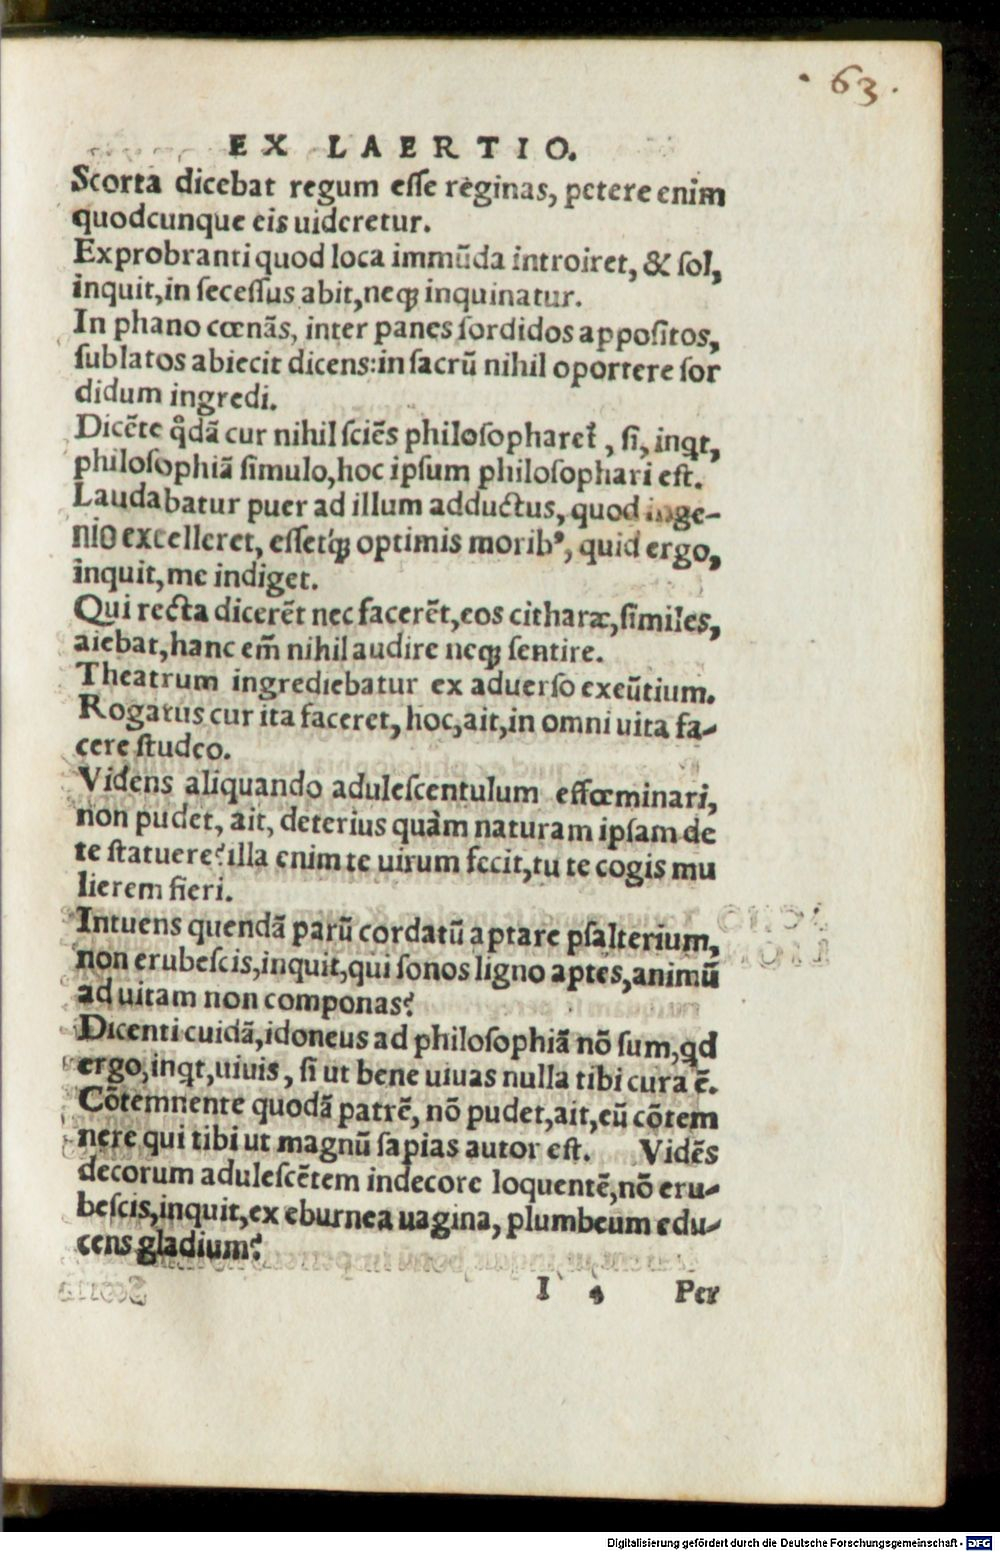 · 63 ·
EX LAERTIO.
Scorta dicebat regum esse reginas, petere enim
quodcunque eis uideretur.
Exprobranti quod loca immũda introiret, & sol,
inquit, in secessus abit, neqꝫ inquinatur.
In phano cœnãs, inter panes sordidos appositos,
sublatos abiecit dicens: in sacrũ nihil oportere sor
didum ingredi.
Dicẽte q̊dã cur nihil sciẽs philosopharet᷑, si, inqt,
philosophiã simulo, hoc ipsum philosophari est.
Laudabatur puer ad illum adductus, quod inge-
nio excelleret, essetqꝫ optimis moribꝰ, quid ergo,
inquit, me indiget.
Qui recta dicerẽt nec facerẽt, eos citharæ, similes,
aiebat, hanc em̃ nihil audire neqꝫ sentire.
Theatrum ingrediebatur ex aduerso exeũtium.
Rogatus cur ita faceret, hoc, ait, in omni uita fa-
cere studeo.
Videns aliquando adulescentulum effœminari,
non pudet, ait, deterius quàm naturam ipsam de
te statuere? illa enim te uirum fecit, tu te cogis mu
lierem fieri.
Intuens quendã parũ cordatũ aptare psalterium,
non erubescis, inquit, qui sonos ligno aptes, animũ
ad uitam non componas?
Dicenti cuidã, idoneus ad philosophiã nõ sum, qd
ergo, inqt, uiuis, si ut bene uiuas nulla tibi cura ẽ.
Cõtemnente quodã patrẽ, nõ pudet, ait, eũ cõtem
nere qui tibi ut magnũ sapias autor est. Vidẽs
decorum adulescẽtem indecore loquentẽ, nõ eru-
bescis, inquit, ex eburnea uagina, plumbeum edu-
cens gladium?
I 4 Per
Digitalisierung gefördert durch die Deutsche Forschungsgemeinschaft - DFG